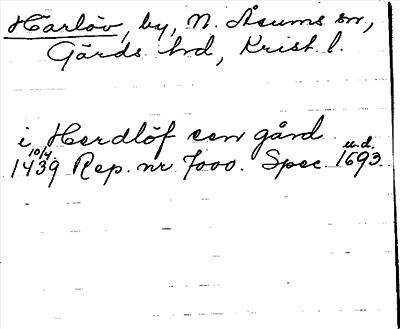 Härlöv, by, N. Åsums sn,
Gärds hd, Krist. l.
i Herdlöf een gård
10/4 1439 Rep. nr 7000. Spec. u.d. 1693.